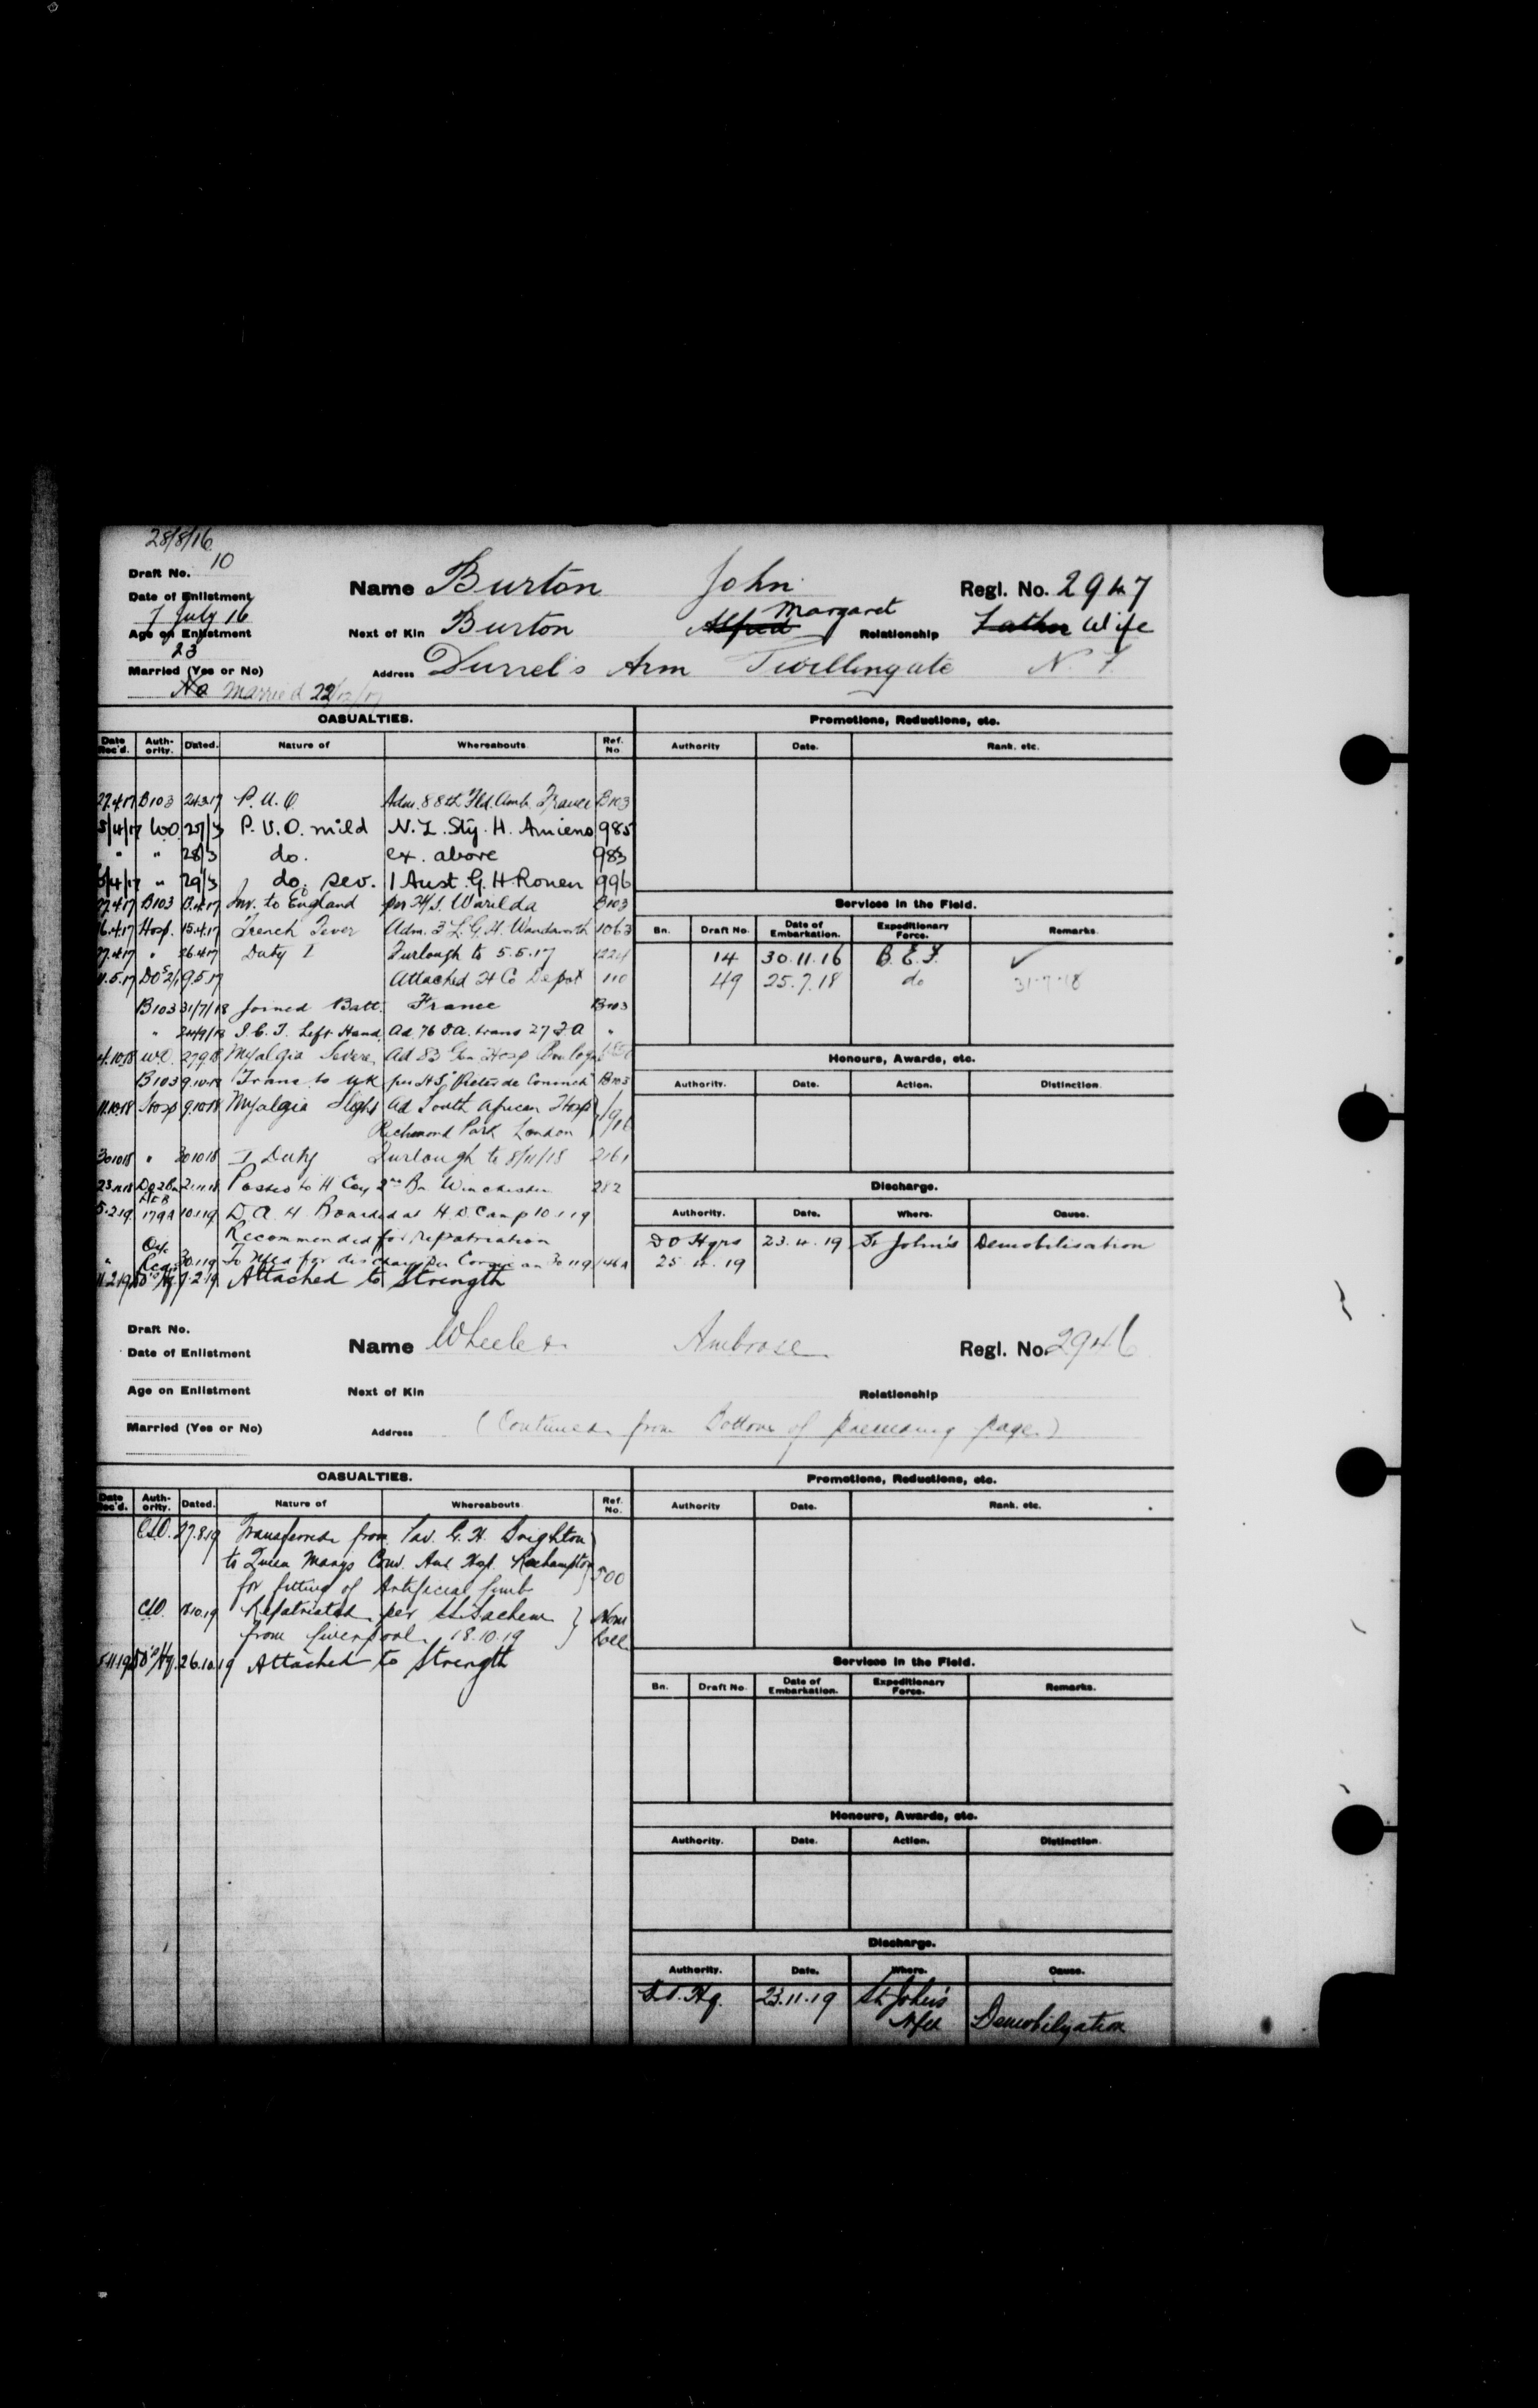 28/8/16
Draft No. 10
Name Burton John Regl. No. 2947
Date of Enlistment
7 July 16
Next of Kin Burton Alfred Margaret Relationship Father Wife
Age on Enlistment
23
Married (Yes or No)
Address Durrel's Arm Twillingate N.F.
No Married 22/12/17
CASUALTIES. Promotions, Reductions, etc.
Date Rec'd. Auth-ority. Dated. Nature of Whereabouts Ref. No Authority Date. Rank, etc.
27.4.17 B103 24.3.17 P.U.O. Adm. 88th Fld. Amb. France B103
5/4/17 W.O. 25/3 P.U.O. mild N.Z. Sty. H. Amiens 985
" " 28/3 do. ex. above 983
5/4/17 " 29/3 do. sev. 1 Aust. G.H. Rouen 996
27.4.17 B103 Inv. to England per H.S. Warilda B103
Services in the Field.
16.4.17 Hosp. 15.4.17 Trench Fever Adm. 3 L.G.H. Wandsworth 1063
Bn. Draft No. Date of Embarkation. Expeditionary Force. Remarks
27.4.17 " 26.4.17 Duty I Furlough to 5.5.17 1224
14 30.11.16 B.E.F. ✓
11.5.17 9.5.17 Attached H Co Depot 110
49 25.7.18 do 31.7.18
B103 31/7/18 Joined Batt. France B103
" 24/9/18 I.C.T. Left Hand Ad. 76 F.A. trans 27 F.A. "
4.10.18 W.O. 27.9.18 Myalgia Severe Ad 83 Gen Hosp Boulogne
Honours, Awards, etc.
B103 9.10.18 Trans to UK per HS "Pieter de Coninck" B103
Authority. Date. Action. Distinction.
11.10.18 Hosp 9.10.18 Myalgia Slight Ad South African Hosp
Richmond Park London
30.10.18 " 30.10.18 I Duty Furlough to 8/11/18 2161
23.11.18 21.11.18 Posted to H Coy 2nd Bn Winchester 282
Discharge.
5.2.19 179A 10.1.19 D.A.H Boarded at H.D. Camp 10.1.19
Authority. Date. Where. Cause.
Recommended for repatriation
DO Hqrs 23.4.19 St John's Demobilisation
25.4.19
" 30.1.19 To Nfld for discharge per Corsican 30.1.19 146A
11.2.19 7.2.19 Attached to Strength
Draft No.
Name Wheeler Ambrose Regl. No. 2946
Date of Enlistment
Age on Enlistment Next of Kin Relationship
Married (Yes or No) Address (Continued from Bottom of preceding page)
CASUALTIES. Promotions, Reductions, etc.
Date Rec'd. Auth-ority. Dated. Nature of Whereabouts Ref. No. Authority Date. Rank, etc.
27.8.19 Transferred from Pav. G.H. Brighton
to Queen Mary's Conv. Aux Hosp. Roehampton
for fitting of Artificial limb 500
18.10.19 Repatriated per SS Sachem
from Liverpool 18.10.19
5.11.19 26.10.19 Attached to Strength
Services in the Field.
Bn. Draft No. Date of Embarkation. Expeditionary Force. Remarks.
Honours, Awards, etc.
Authority. Date. Action. Distinction.
Discharge.
Authority. Date. Where. Cause.
D.O. Hq. 23.11.19 St. John's
Nfld Demobilization